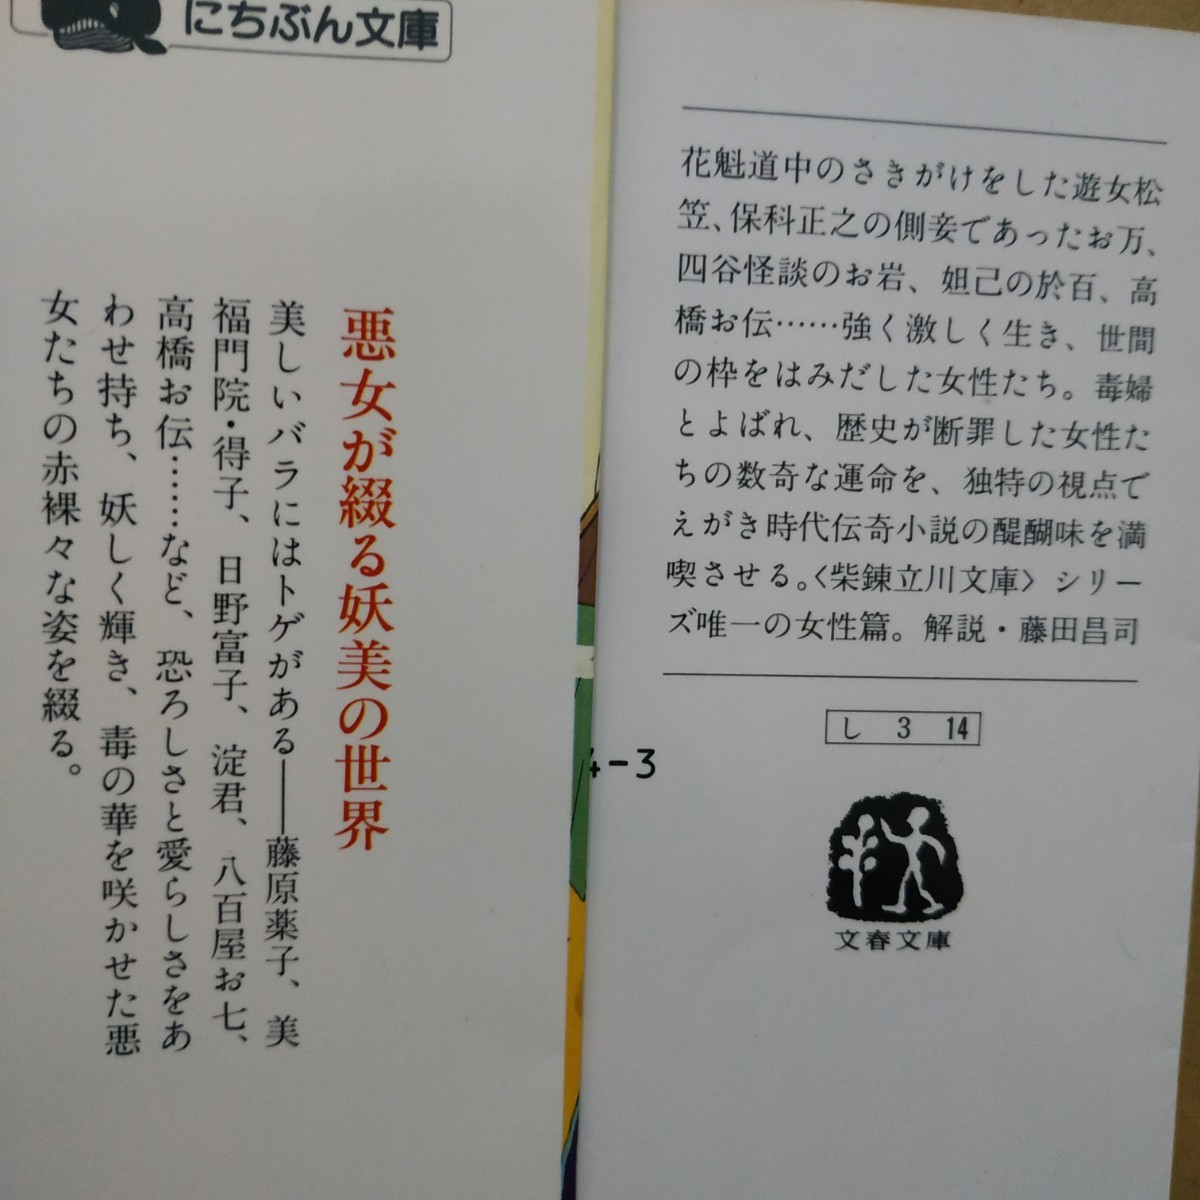 にちぶん文庫
悪女が綴る妖美の世界
美しいバラにはトゲがある――藤原薬子、美
福門院・得子、日野富子、淀君、八百屋お七、
高橋お伝……など、恐ろしさと愛らしさをあ
わせ持ち、妖しく輝き、毒の華を咲かせた悪
女たちの赤裸々な姿を綴る。
4-3
花魁道中のさきがけをした遊女松
笠、保科正之の側妾であったお万、
四谷怪談のお岩、妲己の於百、高
橋お伝……強く激しく生き、世間
の枠をはみだした女性たち。毒婦
とよばれ、歴史が断罪した女性た
ちの数奇な運命を、独特の視点で
えがき時代伝奇小説の醍醐味を満
喫させる。〈柴錬立川文庫〉シリー
ズ唯一の女性篇。解説・藤田昌司
し 3 14
文春文庫